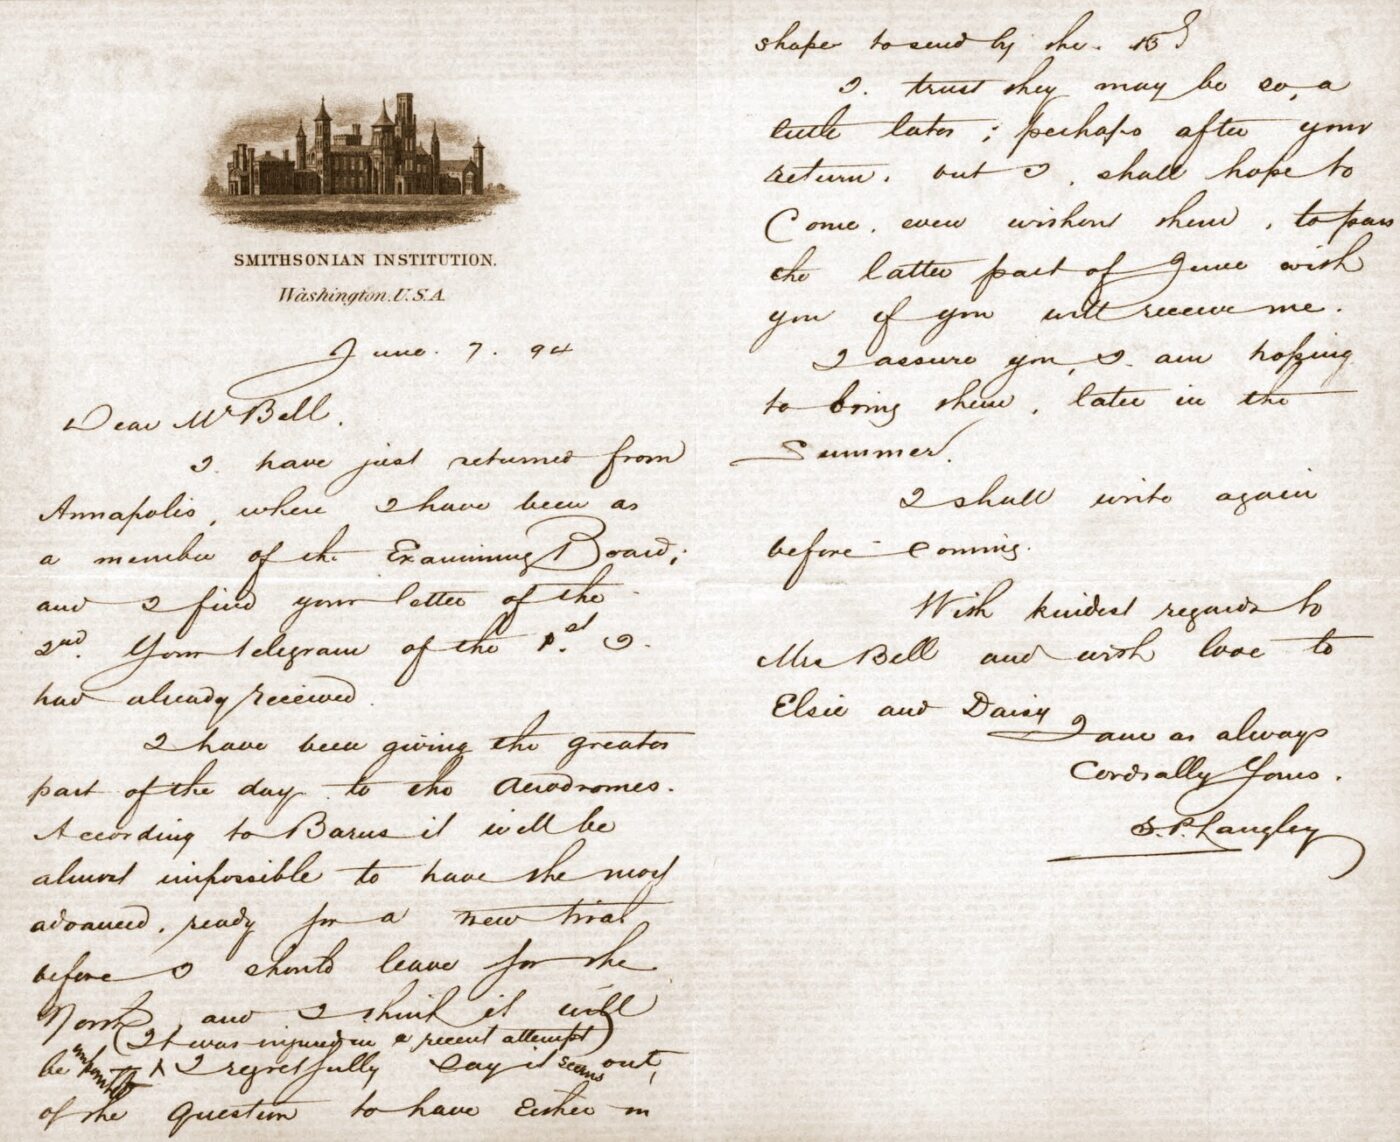 SMITHSONIAN INSTITUTION.
Washington, U.S.A.
June. 7. 94
Dear Mr Bell.
I have just returned from
Annapolis, where I have been as
a member of the Examining Board;
and I find your letter of the
2nd. Your telegram of the 1st. I.
had already received.
I have been giving the greater
part of the day to the Aerodromes.
According to Barus it will be
almost impossible to have the most
advanced, ready for a new trial
before I should leave for the
North, and I think it will
(It was injured in a recent attempt)
be & I regretfully say it seems out,
of the question to have either in
shape to send by the 15
I. trust they may be so, a
little later; perhaps after your
return. but I. shall hope to
Come, even without them, to pass
the latter part of June with
you if you will receive me.
I assure you, I am hoping
to bring them, later in the
Summer.
I shall write again
before coming.
With kindest regards to
Mrs Bell and with love to
Elsie and Daisy
I am as always
Cordially Yours.
S. P. Langley